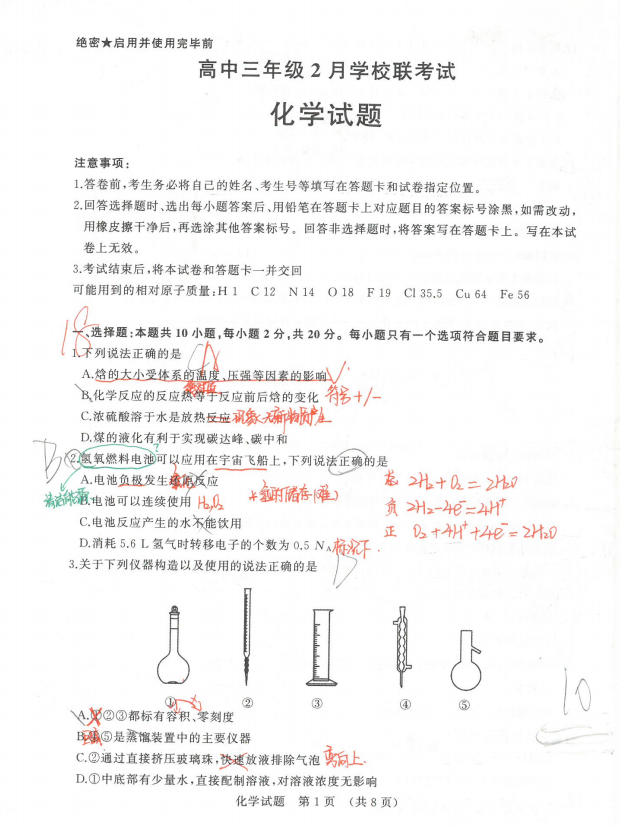 绝密★启用并使用完毕前
高中三年级2月学校联考试
化学试题
注意事项:
1.答卷前,考生务必将自己的姓名、考生号等填写在答题卡和试卷指定位置。
2.回答选择题时、选出每小题答案后、用铅笔在答题卡上对应题目的答案标号涂黑,如需改动,
用橡皮擦干净后,再选涂其他答案标号。回答非选择题时,将答案写在答题卡上。写在本试
卷上无效。
3.考试结束后,将本试卷和答题卡一并交回
可能用到的相对原子质量:H 1 C 12 N 14 O 18 F 19 Cl 35.5 Cu 64 Fe 56
18
一、选择题:本题共10小题,每小题2分,共20分。每小题只有一个选项符合题目要求。
1.下列说法正确的是
A
A.焓的大小受体系的温度、压强等因素的影响
B.化学反应的反应热等于反应前后焓的变化 符号+/-
C.浓硫酸溶于水是放热反应
D.煤的液化有利于实现碳达峰、碳中和
B
2.氢氧燃料电池可以应用在宇宙飞船上,下列说法正确的是
A.电池负极发生还原反应 总 2H₂+O₂=2H₂O
B.电池可以连续使用 H₂,O₂ 负 2H₂-4e⁻=4H⁺
C.电池反应产生的水不能饮用 正 O₂+4H⁺+4e⁻=2H₂O
D.消耗5.6 L氢气时转移电子的个数为0.5 Nₐ 标况下.
3.关于下列仪器构造以及使用的说法正确的是
D
① ② ③ ④ ⑤
10
A.①②③都标有容积、零刻度
B.④⑤是蒸馏装置中的主要仪器
C.②通过直接挤压玻璃珠,快速放液排除气泡
D.①中底部有少量水,直接配制溶液,对溶液浓度无影响
化学试题 第1页 (共8页)